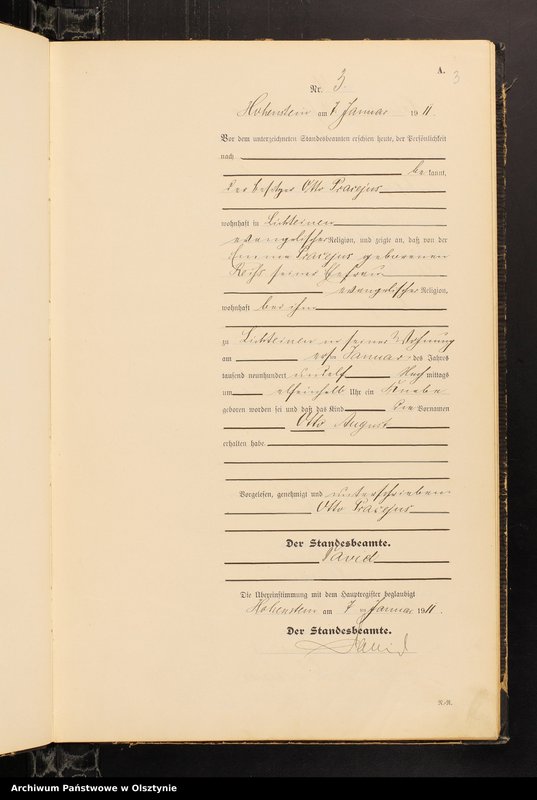 A. 3
Nr. 3.
Hohenstein am 7 Januar 1911.
Vor dem unterzeichneten Standesbeamten erschien heute, der Persönlichkeit
nach
be kannt,
der Besitzer Otto Pracejus
wohnhaft in Lichteinen
evangelischer Religion, und zeigte an, daß von der
Emma Pracejus geborenen
seiner Ehefrau
evangelischer Religion,
wohnhaft bei ihm
zu Lichteinen in seiner Wohnung
am Januar des Jahres
tausend neunhundert und elf Nach mittags
um elfeinhalb Uhr ein Knabe
geboren worden sei und daß das Kind die Vornamen
Otto August
erhalten habe.
Vorgelesen, genehmigt und unterschrieben
Otto Pracejus
Der Standesbeamte.
David
Die Übereinstimmung mit dem Hauptregister beglaubigt
Hohenstein am 7 Januar 1911.
Der Standesbeamte.
David
N.-R.
Archiwum Państwowe w Olsztynie